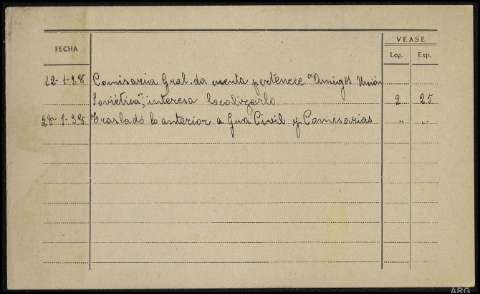 FECHA
VEASE
Leg. Exp.
22-1-38 Comisaria Gral. da cuenta pertenece "Amigos Unión
Soviética", interesa localizarlo 2 25
28-1-38 Traslado lo anterior a Gua Civil y Comisarias " "
ARG